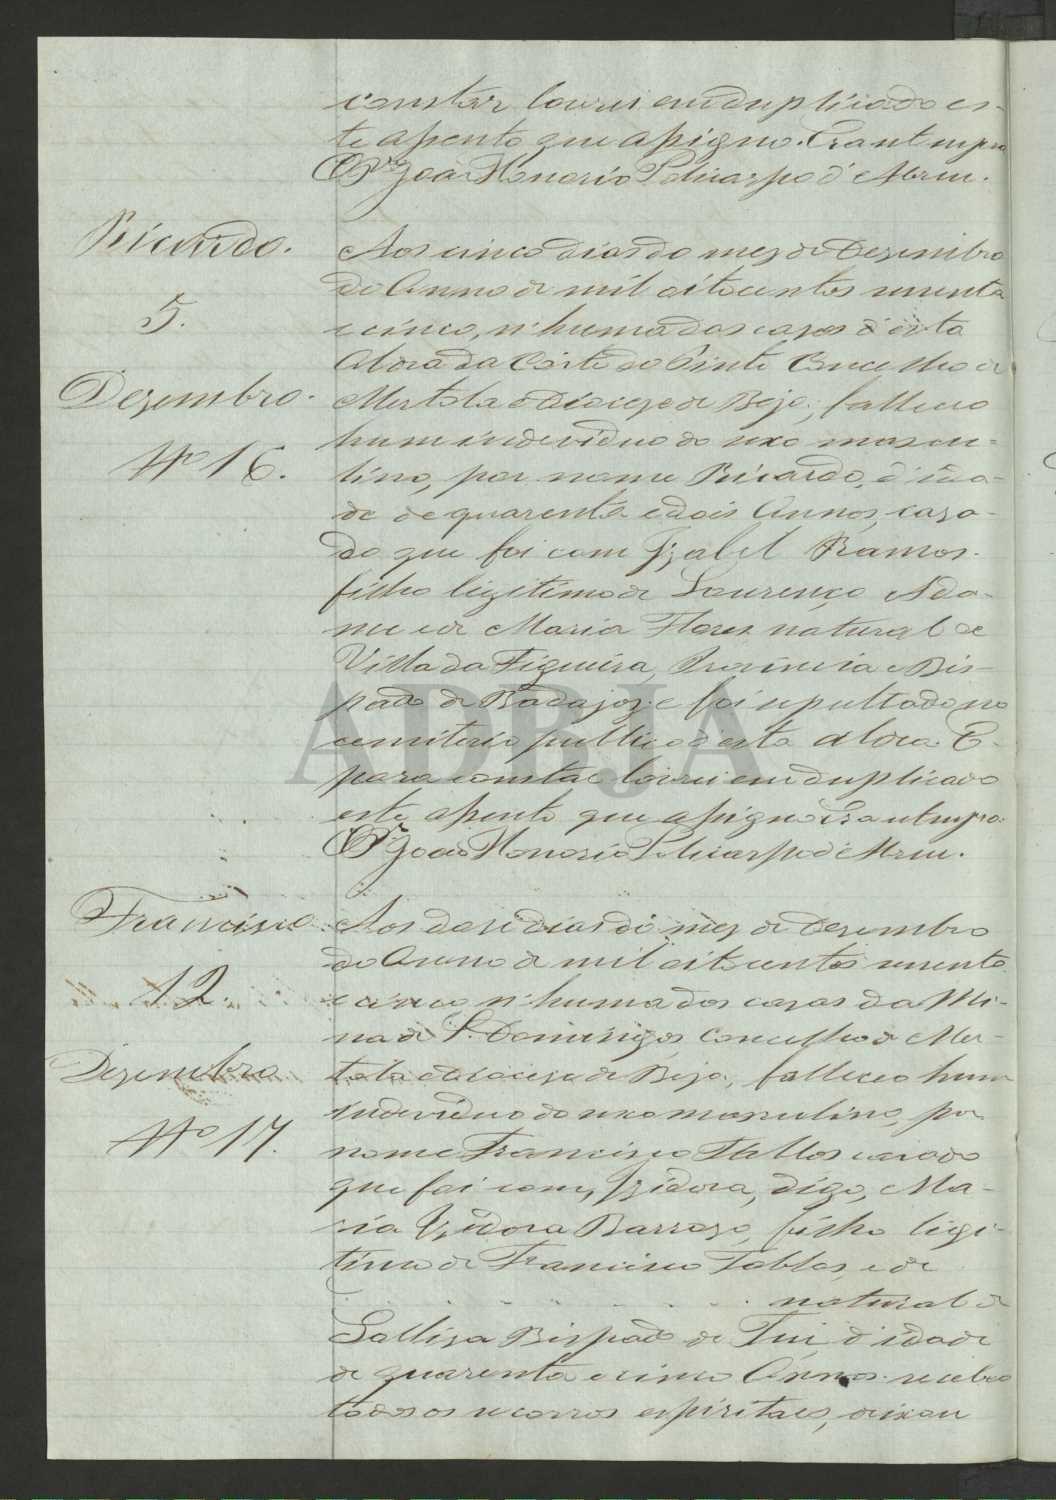 constar lavrei em duplicado es-
te assento que assigno. Era ut supra
O Pr. João Honorio Policarpo d'Abreu.
Ricardo.
5.
Dezembro.
Nº 16.
Aos cinco dias do mez de Dezembro
do Anno de mil oitocentos secenta
e cinco, n'huma das cazas d'esta
Aldea da Côrte do Pinto Concelho de
Mertola e Dioceze de Beja, falleceo
hum individuo do sexo mascu-
lino, por nome Ricardo, d'ida-
de de quarenta e dois Annos, caza-
do que foi com Izabel Ramos.
filho legitimo de Lourenço Ada-
me e de Maria Flores natural de
Villa da Figueira, Provincia e Bis-
pado de Badajoz: e foi sepultado no
cemiterio publico d'esta Aldea. E
para constar lavrei em duplicado
este assento que assigno Era ut supra.
O Pr. João Honorio Policarpo d'Abreu.
ADBJA
Francisco
12.
Dezembro
Nº 17.
Aos doze dias do mez de Dezembro
do Anno de mil oitocentos secenta
e cinco, n'huma das cazas da Mi-
na de S. Domingos, Concelho de Mer-
tola e Diocese de Beja, falleceo hum
individuo do sexo masculino, por
nome Francisco casado
que foi com, Izidora, digo, Ma-
ria Izidora Barrozo, filho legi-
timo de Francisco Tablas, e de
natural de
Galliza Bispado de Tui, d'idade
de quarenta e cinco Annos: recebeo
todos os socorros espiritaes, deixou